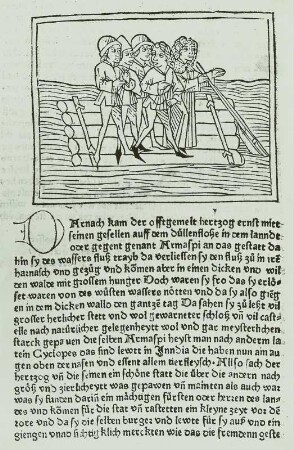 DArnach kam der offtgemelt hertzog ernst mitt
seinen gesellen auff dem düllenfloße in dem lannde
oder gegent genant Armaspi an das gestatt da
hin sy des wassers fluß trayb da verliessen sy den fluß zů in
harnasch vnd gezüg vnd kōmen aber in einen dicken vnd wil
den walde mit grossem hunger Doch waren sy fro das sy erlö
set waren von des wůsten wassers nötten vnd da sy also gieng
en in dem dicken walld den gantzē tag Da sahen sy zů leßt vil
grosser herlicher stett vnd wol gewarneter schloß vn̄ vil cast
elle nach natürlicher gelegenheytt wol vnd gar meysterlichen
starck gepawen die selben Armaspi heyst man nach anderm la
tein Cyclopes das sind lewtt in Inndia die haben nun ain aug
oben der nasen vnd essent allem tierfleysch Allso sach der
hertzog vn̄ die seinen ein schöne statt die über die andern nach
größ vnd zierlicheytt was gepawen vn̄ mainten als auch war
was sy funden darin̄ ein mächtigen fürsten oder herren des lan
des vnd kōmen für die stat vn̄ rastetten ein kleyne zeyt vor dē
tore vnd da sy die selben burger vnd lewte für sy auß vnd ein
giengen vnd merckten wie das die fremden geste